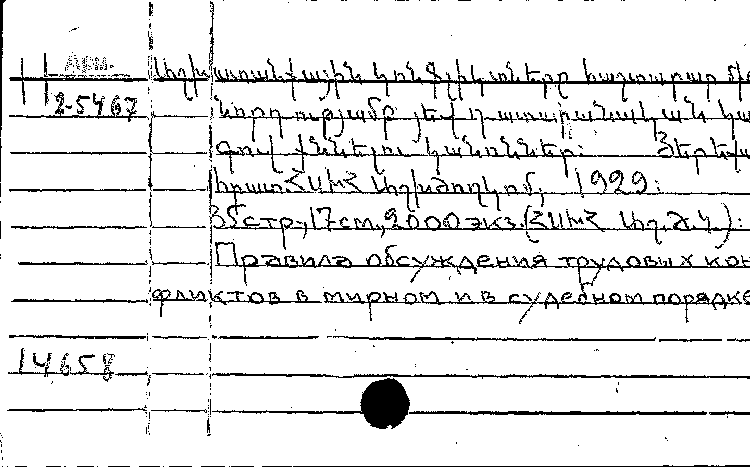 Арм.
Աշխատանքային կոնֆլիկտները հաշտարար մի
2-5467
նորդությամբ յեվ դատարանական կա
գով քննելու կանոններ: Յերեվա
հրատ ՀՍԽՀ Աշխժողկոմ, 1929:
36стр., 17см., 2000экз. (ՀՍԽՀ Աշ.Ժ.Կ.):
Правила обсуждения трудовых кон
фликтов в мирном и в судебном порядке
14658